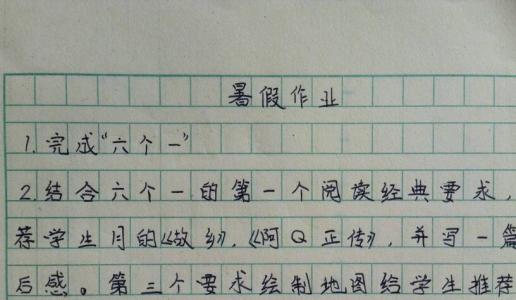 暑假作业
1.完成“六个一”
2.结合六个一的第一个阅读经典要求，
荐学生月的《故乡》，《阿Q正传》，并写一篇
后感。第三个要求绘制地图给学生推荐